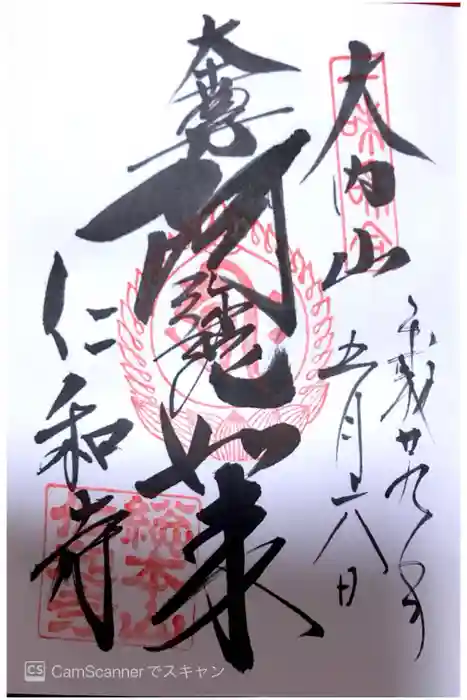 大内山
平成廿九年
五月六日
阿弥陀如来
仁和寺
総本山
仁和寺
CS CamScannerでスキャン